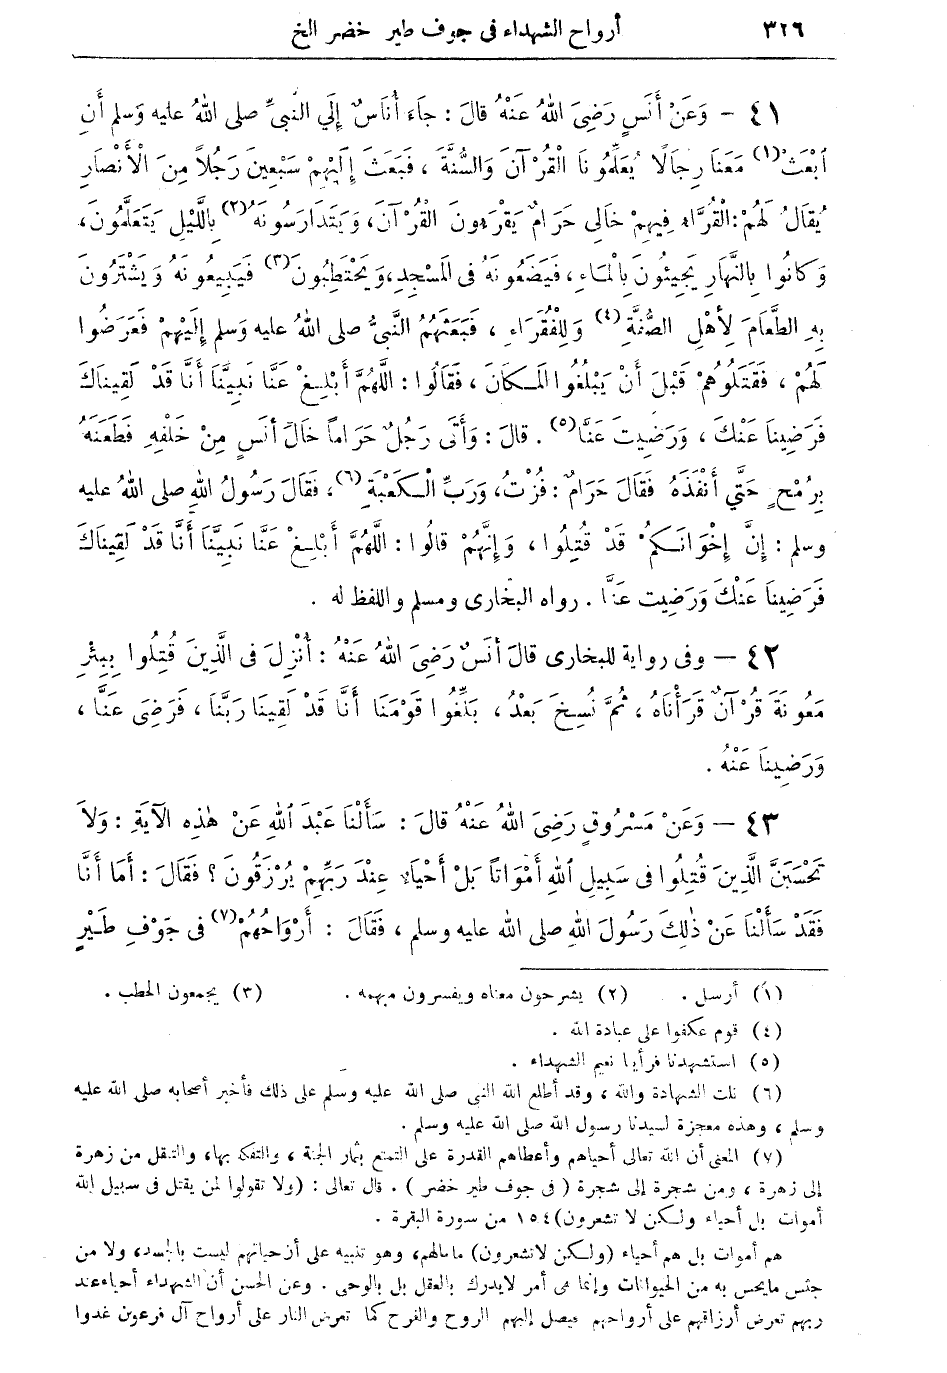 ٣٢٦ أرواح الشهداء فى جوف طير خضر الخ
٤١ – وَعَنْ أَنَسٍ رَضِىَ اللهُ عَنْهُ قالَ : جاءَ أُنَاسٌ إِلَي النَّبىِّ صلى اللهُ عليه وَسلم أَنِ
ابْعَثْ(١) مَعَنَا رِجَالًا يُعَلِّمُونَا الْقُرْآنَ وَالسُّنَّةَ ، فَبَعَثَ إِلَيْهِمْ سَبْعِينَ رَجُلاً مِنَ الْأَنْصَارِ
يُقَالُ لَهُمْ : الْقُرَّاءِ فِيهِمْ خَالِى حَرَامٌ يَقْرَءُونَ الْقُرْآنَ، وَيَتَدَارَسُونَهُ(٢) بِاللَّيْلِ يَتَعَلَّمُونَ،
وَكانُوا بِالنَّهَارِ يَجِيئُونَ بِالْمَاءِ ، فَيَضَعُونَهُ فى المَسْجِدِ، وَيَحْتَطِبُونَ(٣) فَيَبِيعُونَهُ وَيَشْتَرُونَ
بِهِ الطَّعَامَ لِأَهْلِ الصُّفَّةِ(٤) وَلِلْفُقَرَاءِ ، فَبَعَثَهُمُ النَّبىُّ صلى اللهُ عليه وَسلم إِلَيْهِمْ فَعَرَضُوا
لَهُمْ ، فَقَتَلُوهُمْ قَبْلَ أَنْ يَبْلُغُوا المَكانَ ، فَقَالُوا : اللَّهُمَّ أَبْلِغْ عَنَّا نَبِيَّنَا أَنَّا قَدْ لَقِينَاكَ
فَرَضِينَا عَنْكَ ، وَرَضِيتَ عَنَّا(٥) . قالَ : وَأَتَى رَجُلٌ حَرَاماً خَالَ أَنَسٍ مِنْ خَلْفِهِ فَطَعَنَهُ
بِرُمْحٍ حَتَّي أَنْفَذَهُ فَقَالَ حَرَامٌ : فُزْتُ، وَرَبِّ الْكَعْبَةِ(٦)، فَقَالَ رَسُولُ اللهِ صلى اللهُ عليه
وسلم : إِنَّ إِخْوَانَكُمْ قَدْ قُتِلُوا ، وَإِنَّهُمْ قالُوا : اللَّهُمَّ أَبْلِغْ عَنَّا نَبِيَّنَا أَنَّا قَدْ لَقِينَاكَ
فَرَضِينَا عَنْكَ وَرَضِيتَ عَنَّا . رواه البخارى ومسلم واللفظ له .
٤٢ – وفى رواية للبخارى قالَ أَنَسٌ رَضِىَ اللهُ عَنْهُ : أُنْزِلَ فى الَّذِينَ قُتِلُوا بِبِئْرِ
مَعُونَةَ قُرْآنٌ قَرَأْنَاهُ ، ثُمَّ نُسِخَ بَعْدُ ، بَلِّغُوا قَوْمَنَا أَنَّا قَدْ لَقِينَا رَبَّنَا ، فَرَضِىَ عَنَّا ،
وَرَضِينَا عَنْهُ .
٤٣ – وَعَنْ مَسْرُوقٍ رَضِىَ اللهُ عَنْهُ قالَ : سَأَلْنَا عَبْدَ اللهِ عَنْ هٰذِهِ الآيَةِ : وَلاَ
تَحْسَبَنَّ الَّذِينَ قُتِلُوا فى سَبِيلِ اللهِ أَمْوَاتاً بَلْ أَحْيَاءٌ عِنْدَ رَبِّهِمْ يُرْزَقُونَ ؟ فَقَالَ : أَمَا أَنَّا
فَقَدْ سَأَلْنَا عَنْ ذٰلِكَ رَسُولَ اللهِ صلى الله عليه وسلم ، فَقَالَ : أَرْوَاحُهُمْ(٧) فى جَوْفِ طَيْرٍ
(١) أرسل . (٢) يشرحون معناه ويفسرون مبهمه . (٣) يجمعون الحطب .
(٤) قوم عكفوا على عبادة الله .
(٥) استشهدنا فرأينا نعيم الشهداء .
(٦) نلت الشهادة والله ، وقد أطلع الله النبى صلى الله عليه وسلم على ذلك فأخبر أصحابه صلى الله عليه
وسلم ، وهذه معجزة لسيدنا رسول الله صلى الله عليه وسلم .
(٧) المعنى أن الله تعالى أحياهم وأعطاهم القدرة على التمتع بثمار الجنة ، والتفكه بها، والتنقل من زهرة
إلى زهرة ، ومن شجرة إلى شجرة ( فى جوف طير خضر ) . قال تعالى : (ولا تقولوا لمن يقتل فى سبيل الله
أموات بل أحياء ولكن لا تشعرون) ١٥٤ من سورة البقرة .
هم أموات بل هم أحياء (ولكن لا تشعرون) ما حالهم، وهو تنبيه على أن حياتهم ليست بالجسد، ولا من
جنس ما يحس به من الحيوانات وإنما هى أمر لا يدرك بالعقل بل بالوحى . وعن الحسن أن الشهداء أحياء عند
ربهم تعرض أرزاقهم على أرواحهم فيصل إليهم الروح والفرح كما تعرض النار على أرواح آل فرعون غدوا